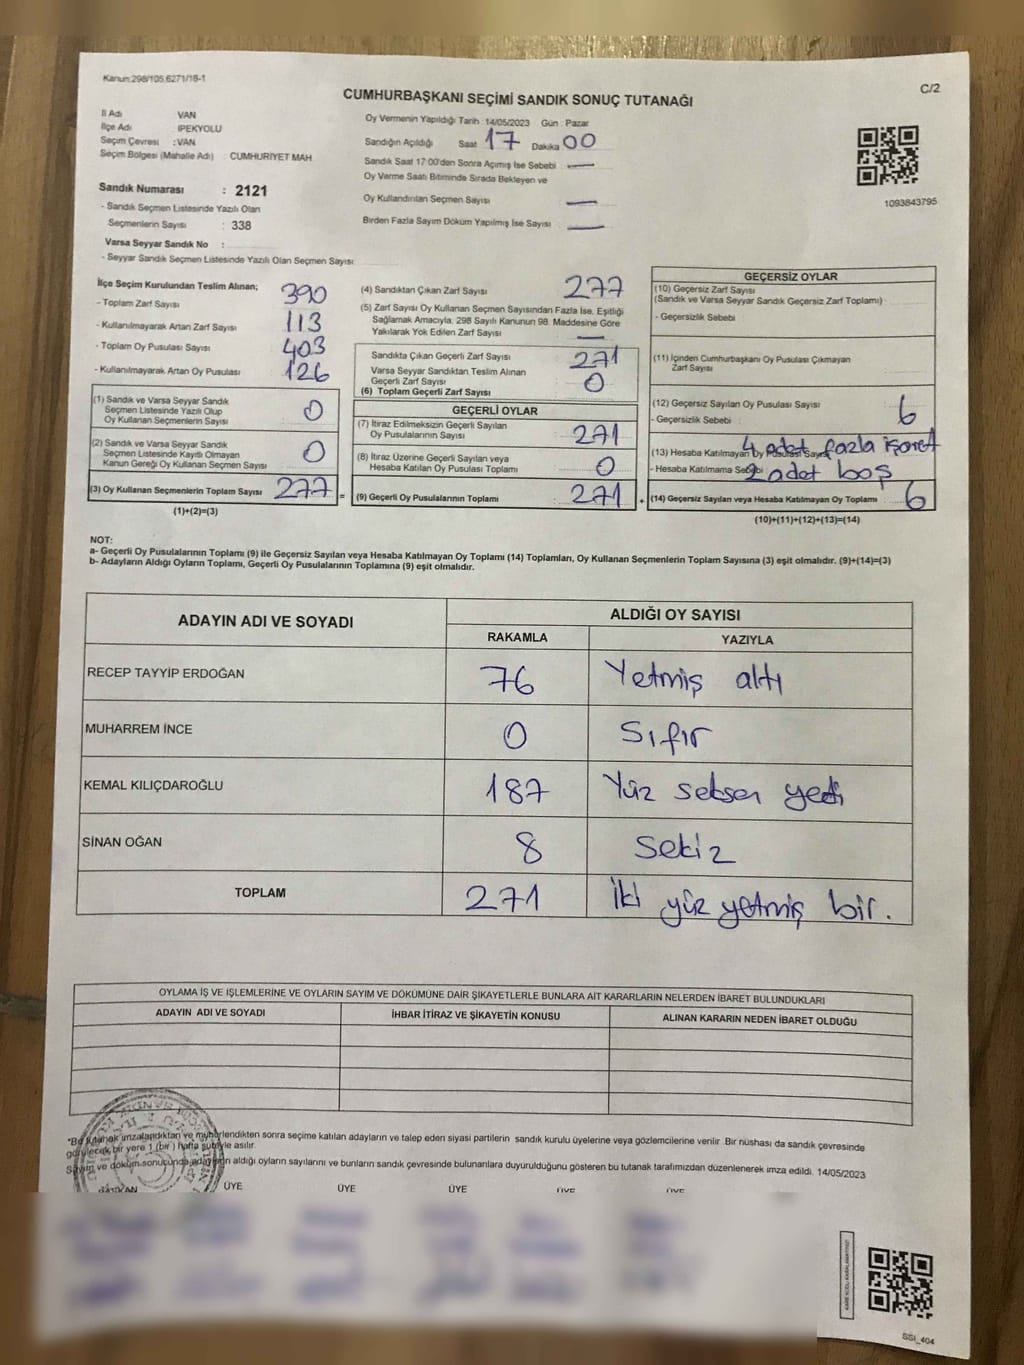 Kanun:298/105.6271/18-1
C/2
CUMHURBAŞKANI SEÇİMİ SANDIK SONUÇ TUTANAĞI
İl Adı VAN
İlçe Adı İPEKYOLU
Seçim Çevresi : VAN
Seçim Bölgesi (Mahalle Adı) : CUMHURİYET MAH
Sandık Numarası : 2121
- Sandık Seçmen Listesinde Yazılı Olan
Seçmenlerin Sayısı : 338
Varsa Seyyar Sandık No :
- Seyyar Sandık Seçmen Listesinde Yazılı Olan Seçmen Sayısı
Oy Vermenin Yapıldığı Tarih 14/05/2023 Gün : Pazar
Sandığın Açıldığı Saat 17 Dakika 00
Sandık Saat 17:00'den Sonra Açımış İse Sebebi —
Oy Verme Saati Bitiminde Sırada Bekleyen ve
Oy Kullandırılan Seçmen Sayısı —
Birden Fazla Sayım Döküm Yapılmış İse Sayısı —
1093843795
İlçe Seçim Kurulundan Teslim Alınan;
- Toplam Zarf Sayısı 390
- Kullanılmayarak Artan Zarf Sayısı 113
- Toplam Oy Pusulası Sayısı 403
- Kullanılmayarak Artan Oy Pusulası 126
(1) Sandık ve Varsa Seyyar Sandık
Seçmen Listesinde Yazılı Olup
Oy Kullanan Seçmenlerin Sayısı 0
(2) Sandık ve Varsa Seyyar Sandık
Seçmen Listesinde Kayıtlı Olmayan
Kanun Gereği Oy Kullanan Seçmen Sayısı 0
(3) Oy Kullanan Seçmenlerin Toplam Sayısı 277 =
(1)+(2)=(3)
(4) Sandıktan Çıkan Zarf Sayısı 277
(5) Zarf Sayısı Oy Kullanan Seçmen Sayısından Fazla İse, Eşitliği
Sağlamak Amacıyla, 298 Sayılı Kanunun 98. Maddesine Göre
Yakılarak Yok Edilen Zarf Sayısı —
Sandıkta Çıkan Geçerli Zarf Sayısı 271
Varsa Seyyar Sandıktan Teslim Alınan
Geçerli Zarf Sayısı 0
(6) Toplam Geçerli Zarf Sayısı
GEÇERLİ OYLAR
(7) İtiraz Edilmeksizin Geçerli Sayılan
Oy Pusulalarının Sayısı 271
(8) İtiraz Üzerine Geçerli Sayılan veya
Hesaba Katılan Oy Pusulası Toplamı 0
(9) Geçerli Oy Pusulalarının Toplamı 271 +
GEÇERSİZ OYLAR
(10) Geçersiz Zarf Sayısı
(Sandık ve Varsa Seyyar Sandık Geçersiz Zarf Toplamı)
- Geçersizlik Sebebi
(11) İçinden Cumhurbaşkanı Oy Pusulası Çıkmayan
Zarf Sayısı
(12) Geçersiz Sayılan Oy Pusulası Sayısı 6
- Geçersizlik Sebebi
4 adet fazla işaret
(13) Hesaba Katılmayan Oy Pusulası Sayısı
2 adet boş
- Hesaba Katılmama Sebebi
(14) Geçersiz Sayılan veya Hesaba Katılmayan Oy Toplamı 6
(10)+(11)+(12)+(13)=(14)
NOT:
a- Geçerli Oy Pusulalarının Toplamı (9) ile Geçersiz Sayılan veya Hesaba Katılmayan Oy Toplamı (14) Toplamları, Oy Kullanan Seçmenlerin Toplam Sayısına (3) eşit olmalıdır. (9)+(14)=(3)
b- Adayların Aldığı Oyların Toplamı, Geçerli Oy Pusulalarının Toplamına (9) eşit olmalıdır.
ADAYIN ADI VE SOYADI ALDIĞI OY SAYISI
RAKAMLA YAZIYLA
RECEP TAYYİP ERDOĞAN 76 Yetmiş altı
MUHARREM İNCE 0 Sıfır
KEMAL KILIÇDAROĞLU 187 Yüz seksen yedi
SİNAN OĞAN 8 Sekiz
TOPLAM 271 İki yüz yetmiş bir.
OYLAMA İŞ VE İŞLEMLERİNE VE OYLARIN SAYIM VE DÖKÜMÜNE DAİR ŞİKAYETLERLE BUNLARA AİT KARARLARIN NELERDEN İBARET BULUNDUKLARI
ADAYIN ADI VE SOYADI İHBAR İTİRAZ VE ŞİKAYETİN KONUSU ALINAN KARARIN NEDEN İBARET OLDUĞU
*Bu tutanak imzalandıktan ve mühürlendikten sonra seçime katılan adayların ve talep eden siyasi partilerin sandık kurulu üyelerine veya gözlemcilerine verilir. Bir nüshası da sandık çevresinde
görülecek bir yere 1 (bir) hafta süreyle asılır.
Sayım ve döküm sonucunda adayların aldığı oyların sayılarını ve bunların sandık çevresinde bulunanlara duyurulduğunu gösteren bu tutanak tarafımızdan düzenlenerek imza edildi. 14/05/2023
BAŞKAN ÜYE ÜYE ÜYE ÜYE ÜYE
SSI_404